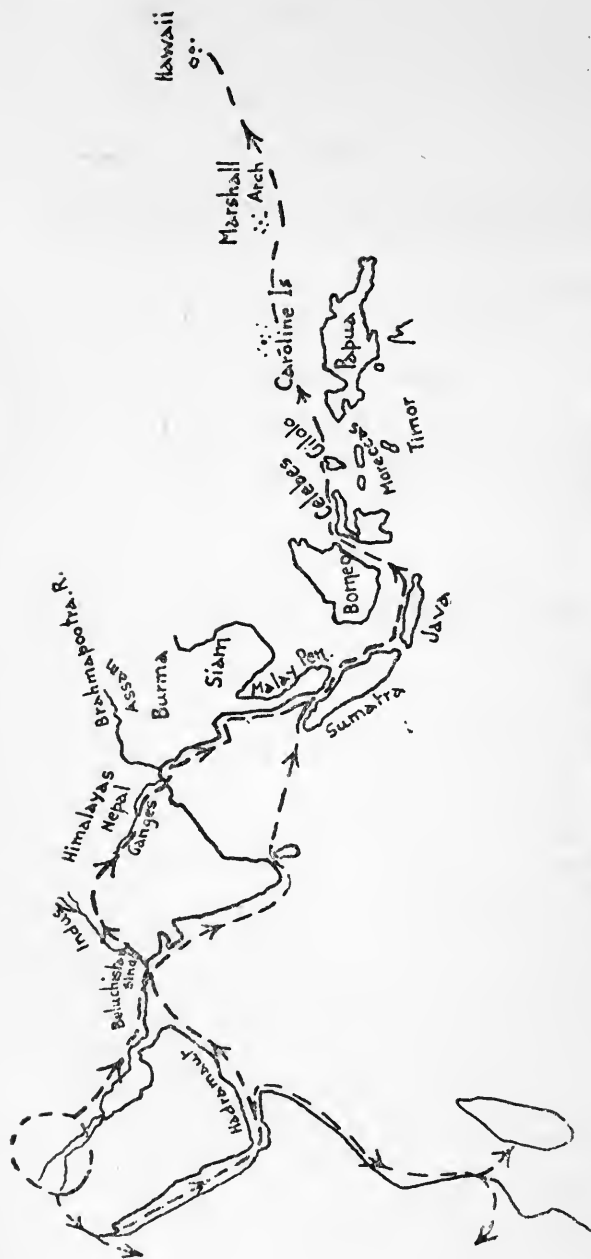 Hawaii
Marshall
Arch
Caroline Is
Papua
Gilolo
Celebes
Moreccas
Timor
Borneo
Java
Brahmapootra. R.
Assam
Burma
Siam
Malay Pen.
Sumatra
Himalayas
Nepal
Ganges
Indus
Beluchistan
Sind
Hadramaut